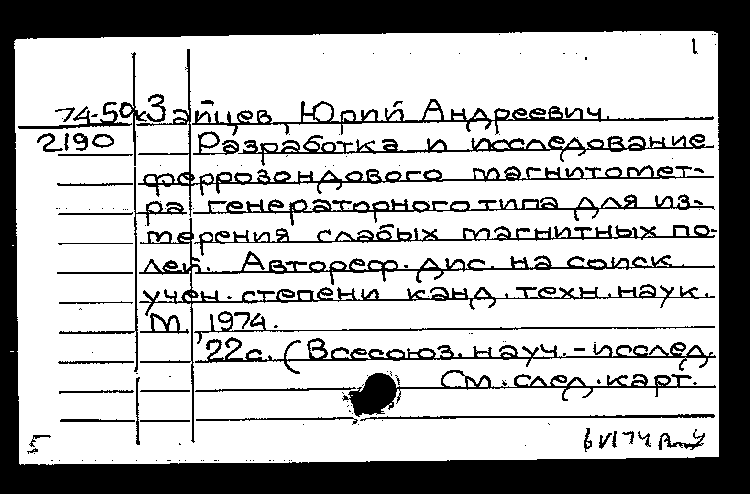 1
74-50к Зайцев, Юрий Андреевич.
2190 Разработка и исследование
феррозондового магнитомет-
ра генераторного типа для из-
мерения слабых магнитных по-
лей. Автореф. дис. на соиск.
учен. степени канд. техн. наук.
М., 1974.
22с. (Всесоюз. науч.-исслед.
См. след. карт.
5 6 VI 74